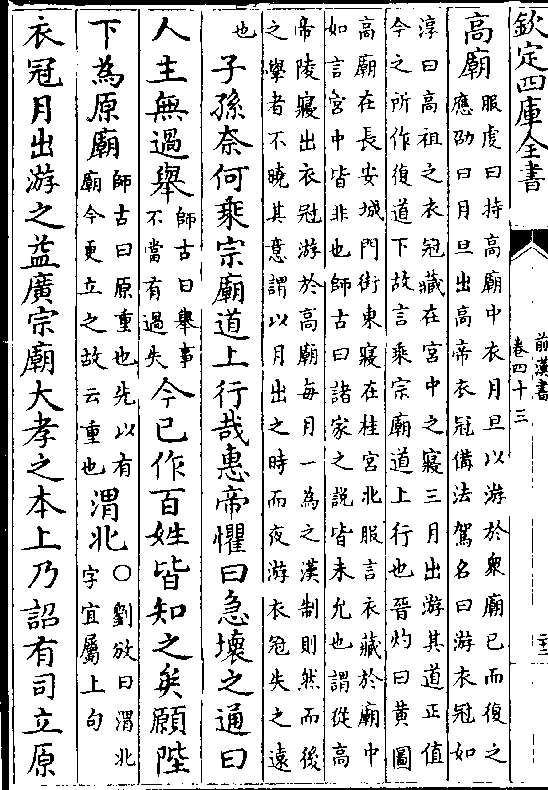 欽定四庫全書
前漢書
卷四十三
高廟
服虔曰持高廟中衣月旦以游於衆廟已而復之
應劭曰月旦出高帝衣冠備法駕名曰游衣冠如
淳曰高祖之衣冠藏在宮中之寢三月出游其道正值
今之所作復道下故言乘宗廟道上行也晉灼曰黄圖
高廟在長安城門街東寢在桂宮北服言衣藏於廟中
如言宮中皆非也師古曰諸家之説皆未允也謂從高
帝陵寢出衣冠游於高廟每月一為之漢制則然而後
之學者不曉其意謂以月出之時而夜游衣冠失之遠
也
子孫奈何乘宗廟道上行哉惠帝懼曰急壞之通曰
人主無過舉
師古曰舉事
不當有過失
今已作百姓皆知之矣願陛
下為原廟
師古曰原重也先以有
廟今更立之故云重也
渭北
○劉攽曰渭北
字宜屬上句
衣冠月出游之益廣宗廟大孝之本上乃詔有司立原